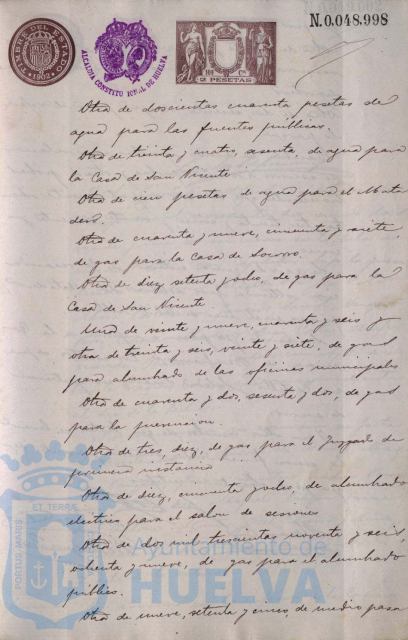 N.0,048,998
TIMBRE DEL ESTADO
1902
ALCALDIA CONSTITUCIONAL DE HUELVA
100 Cs
2 PESETAS
Otra de doscientas cuarenta pesetas de
agua para las fuentes públicas.
Otra de treinta y cuatro, sesenta, de agua para
la Casa de San Vicente
Otra de cien pesetas de agua para el Mata
dero.
Otra de cuarenta y nueve, cincuenta y siete,
de gas para la Casa de Socorro.
Otra de diez, setenta y ocho, de gas para la
Casa de San Vicente
Una de veinte y nueve, cuarenta y seis y
otra de treinta y seis, veinte y siete, de gas
para alumbrado de las oficinas municipales
Otra de cuarenta y dos, sesenta y dos, de gas
para la prevencion.
Otra de tres, diez, de gas para el Juzgado de
primera instancia
Otra de diez, cincuenta y ocho, de alumbrado
electrico para el salon de sesiones
Otra de dos mil trescientas noventa y seis,
ochenta y nueve, de gas para el alumbrado
público.
Otra de nueve, setenta y cinco, de medio pasa
PORTUS MARIS
ET TERRÆ
Ayuntamiento de
HUELVA